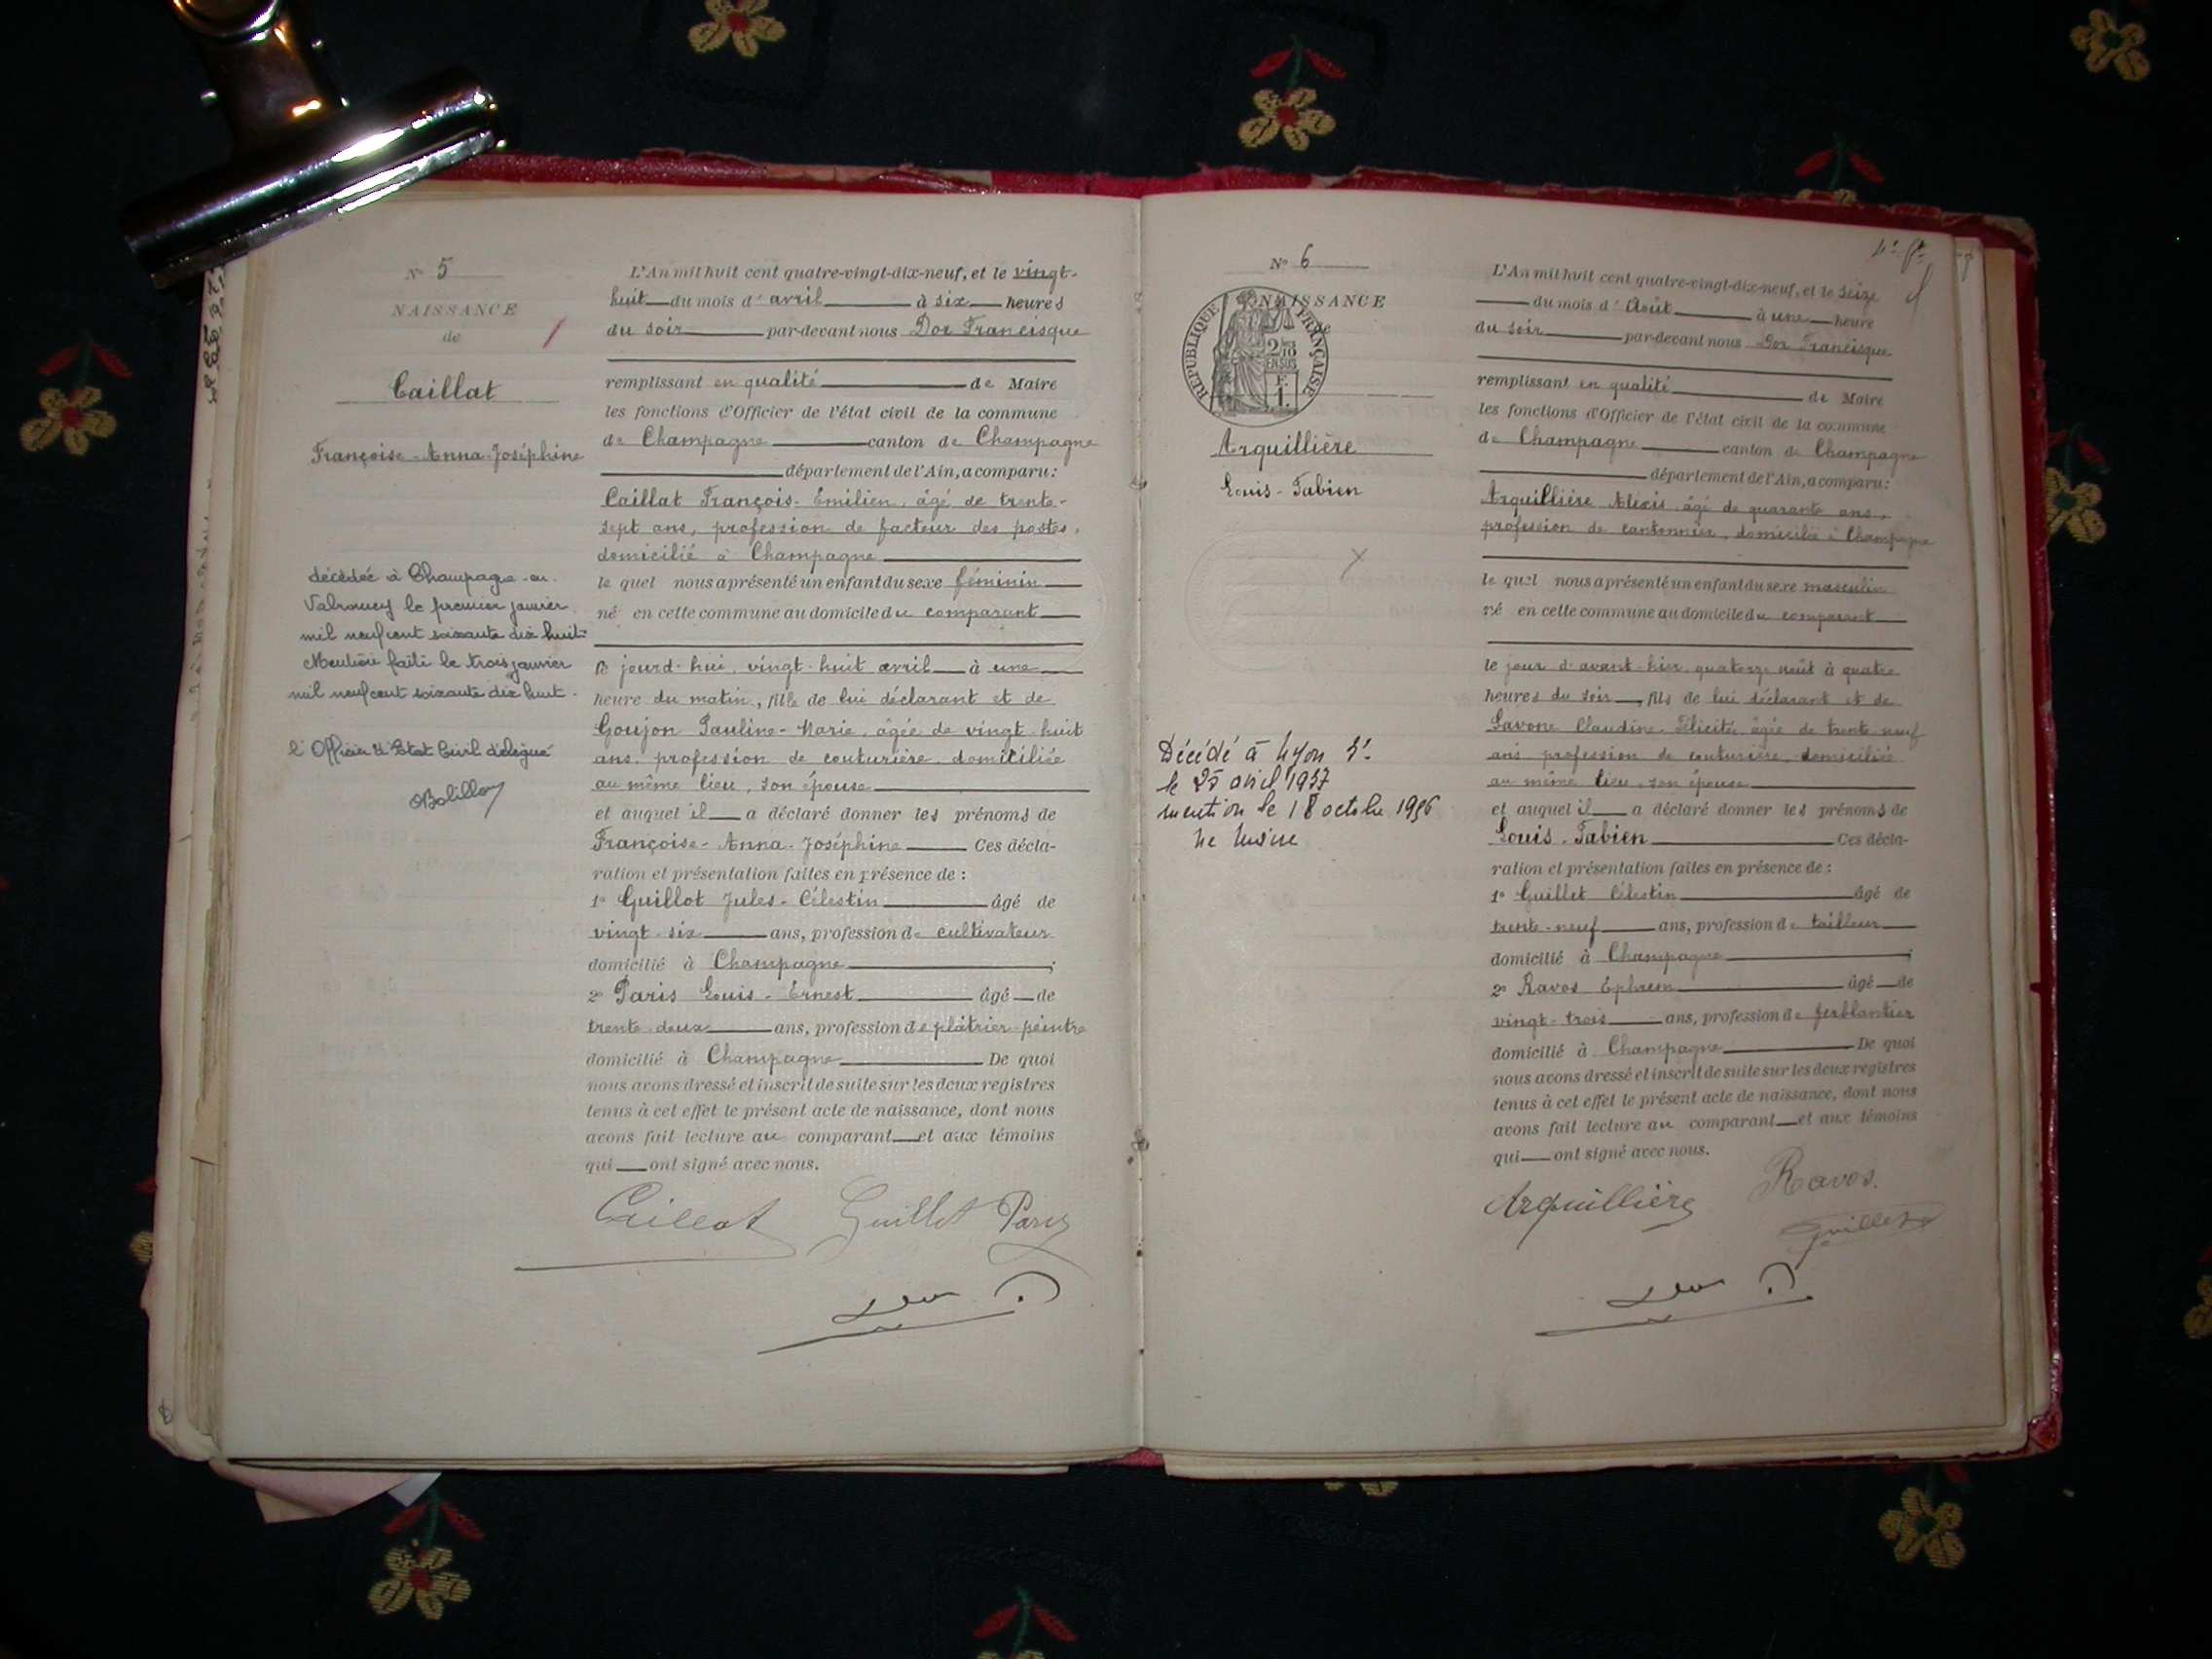 N° 5
NAISSANCE
de
Caillat
Françoise-Anna-Joséphine
décédée à Champagne-en-
Valromey le premier janvier
mil neuf cent soixante dix huit.
Mention faite le trois janvier
mil neuf cent soixante dix huit.
l'Officier d'Etat Civil délégué
L'An mil huit cent quatre-vingt-dix-neuf, et le vingt-
huit du mois d'avril à six heures
du soir par-devant nous Dor Francisque
remplissant en qualité de Maire
les fonctions d'Officier de l'état civil de la commune
de Champagne canton de Champagne
département de l'Ain, a comparu:
Caillat François-Emilien, âgé de trente-
sept ans, profession de facteur des postes,
domicilié à Champagne
le quel nous a présenté un enfant du sexe féminin
né en cette commune au domicile du comparant
le jourd-hui, vingt-huit avril à une
heure du matin, fille de lui déclarant et de
Goujon Pauline-Marie, âgée de vingt-huit
ans, profession de couturière, domiciliée
au même lieu, son épouse
et auquel il a déclaré donner les prénoms de
Françoise-Anna-Joséphine Ces décla-
ration et présentation faites en présence de:
1° Guillot Jules-Célestin âgé de
vingt-six ans, profession de cultivateur
domicilié à Champagne;
2° Paris Louis-Ernest âgé de
trente-deux ans, profession de plâtrier-peintre
domicilié à Champagne De quoi
nous avons dressé et inscrit de suite sur les deux registres
tenus à cet effet le présent acte de naissance, dont nous
avons fait lecture au comparant et aux témoins
qui ont signé avec nous.
Caillat Guillot Paris
Dor F.
N° 6
NAISSANCE
RÉPUBLIQUE FRANÇAISE
2/10
EN SUS
F.
1.
Arquillière
Louis-Fabien
Décédé à Lyon 3e
le 25 avril 1937
mention le 18 octobre 1956
L'An mil huit cent quatre-vingt-dix-neuf, et le seize
du mois d'Août à une heure
du soir par-devant nous Dor Francisque
remplissant en qualité de Maire
les fonctions d'Officier de l'état civil de la commune
de Champagne canton de Champagne
département de l'Ain, a comparu:
Arquillière Alexis, âgé de quarante ans,
profession de cantonnier, domicilié à Champagne
le quel nous a présenté un enfant du sexe masculin
né en cette commune au domicile du comparant
le jour d'avant-hier, quatorze août à quatre
heures du soir, fils de lui déclarant et de
Savone Claudine-Félicité, âgée de trente-neuf
ans profession de couturière, domiciliée
au même lieu, son épouse
et auquel il a déclaré donner les prénoms de
Louis-Fabien Ces décla-
ration et présentation faites en présence de:
1° Guillet Célestin âgé de
trente-neuf ans, profession de tailleur
domicilié à Champagne;
2° Ravos Ephrem âgé de
vingt-trois ans, profession de ferblantier
domicilié à Champagne De quoi
nous avons dressé et inscrit de suite sur les deux registres
tenus à cet effet le présent acte de naissance, dont nous
avons fait lecture au comparant et aux témoins
qui ont signé avec nous.
Arquillière Ravos.
Guillet
Dor F.